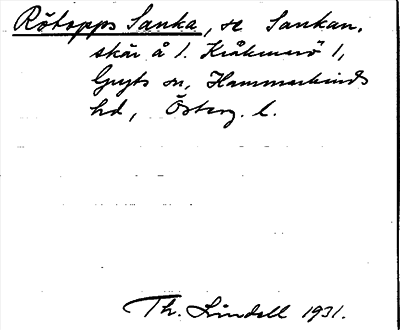 Rötopps Sanka, se Sankan.
skär å l. Kråkmarö 1,
Gryts sn, Hammarkinds
hd, Österg. l.
Th. Lindell 1931.